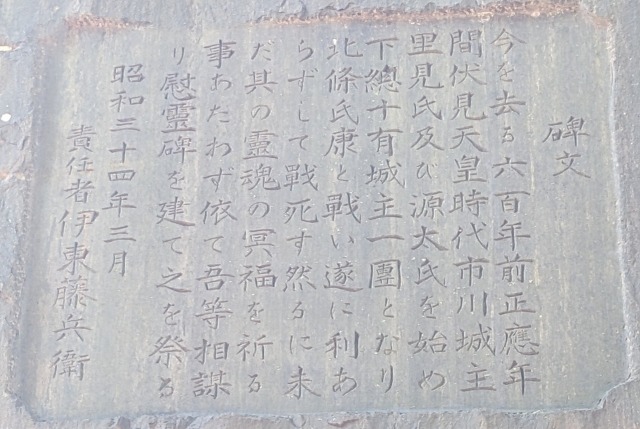 碑文
今を去る六百年前正應年
間伏見天皇時代市川城主
里見氏及び源太氏を始め
下總十有城主一團となり
北條氏康と戰い遂に利あ
らずして戰死す然るに未
だ其の靈魂の冥福を祈る
事あたわず依て吾等相謀
り慰霊碑を建て之を祭る
昭和三十四年三月
責任者伊東藤兵衛